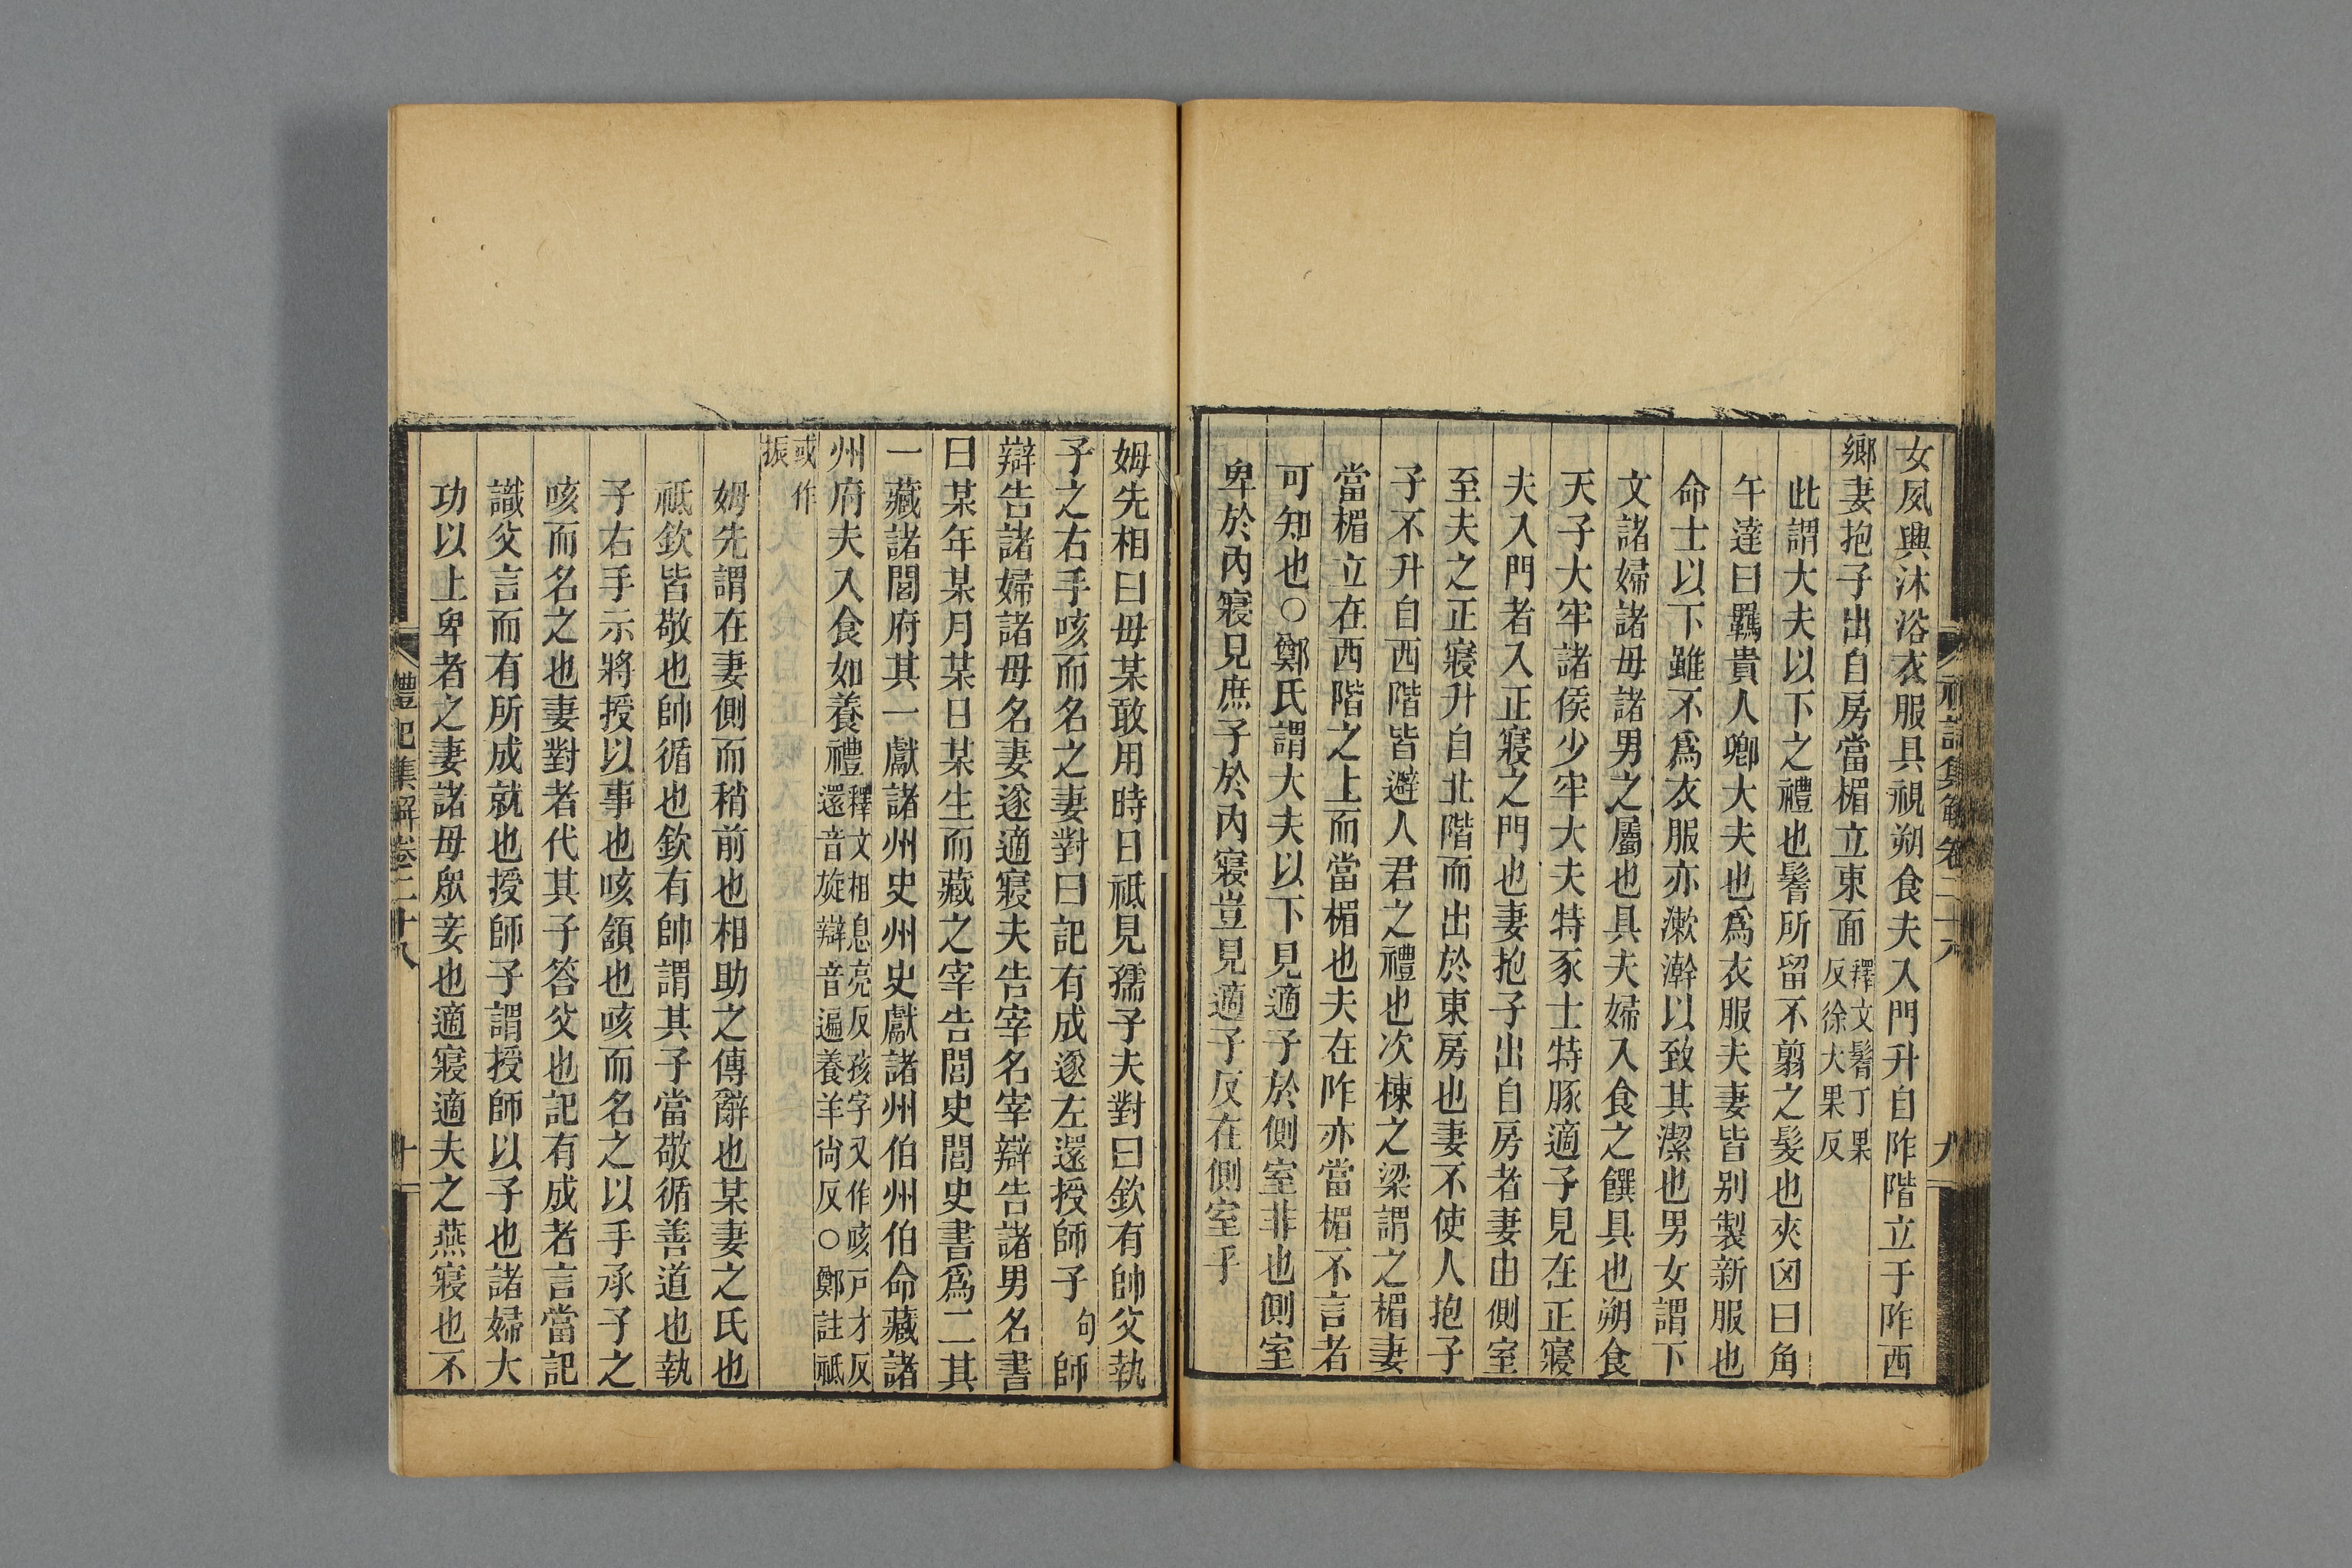 女夙興沐浴衣服具視朔食夫入門升自阼階立于阼西
鄉妻抱子出自房當楣立東面釋文鬌丁果反徐大果反
此謂大夫以下之禮也鬌所留不翦之髮也夾囟曰角
午達曰羈貴人卿大夫也爲衣服夫妻皆别製新服也
命士以下雖不爲衣服亦漱澣以致其潔也男女謂下
文諸婦諸母諸男之屬也具夫婦入食之饌具也朔食
天子大牢諸侯少牢大夫特豕士特豚適子見在正寢
夫入門者入正寢之門也妻抱子出自房者妻由側室
至夫之正寢升自北階而出於東房也妻不使人抱子
子不升自西階皆避人君之禮也次棟之梁謂之楣妻
當楣立在西階之上而當楣也夫在阼亦當楣不言者
可知也○鄭氏謂大夫以下見適子於側室非也側室
卑於內寢見庶子於內寢豈見適子反在側室乎
姆先相曰母某敢用時日祗見孺子夫對曰欽有帥父執
子之右手咳而名之妻對曰記有成遂左還授師子句師
辯告諸婦諸母名妻遂適寢夫告宰名宰辯告諸男名書
曰某年某月某日某生而藏之宰告閭史閭史書爲二其
一藏諸閭府其一獻諸州史州史獻諸州伯州伯命藏諸
州府夫入食如養禮釋文相息亮反孩字又作咳戸才反還音旋辯音遍養羊尙反○鄭註祗
或作振
姆先謂在妻側而稍前也相助之傳辭也某妻之氏也
祗欽皆敬也師循也欽有帥謂其子當敬循善道也執
子右手示將授以事也咳頷也咳而名之以手承子之
咳而名之也妻對者代其子答父也記有成者言當記
識父言而有所成就也授師子謂授師以子也諸婦大
功以上卑者之妻諸母眾妾也適寢適夫之燕寢也不
禮記集解卷二十八
十